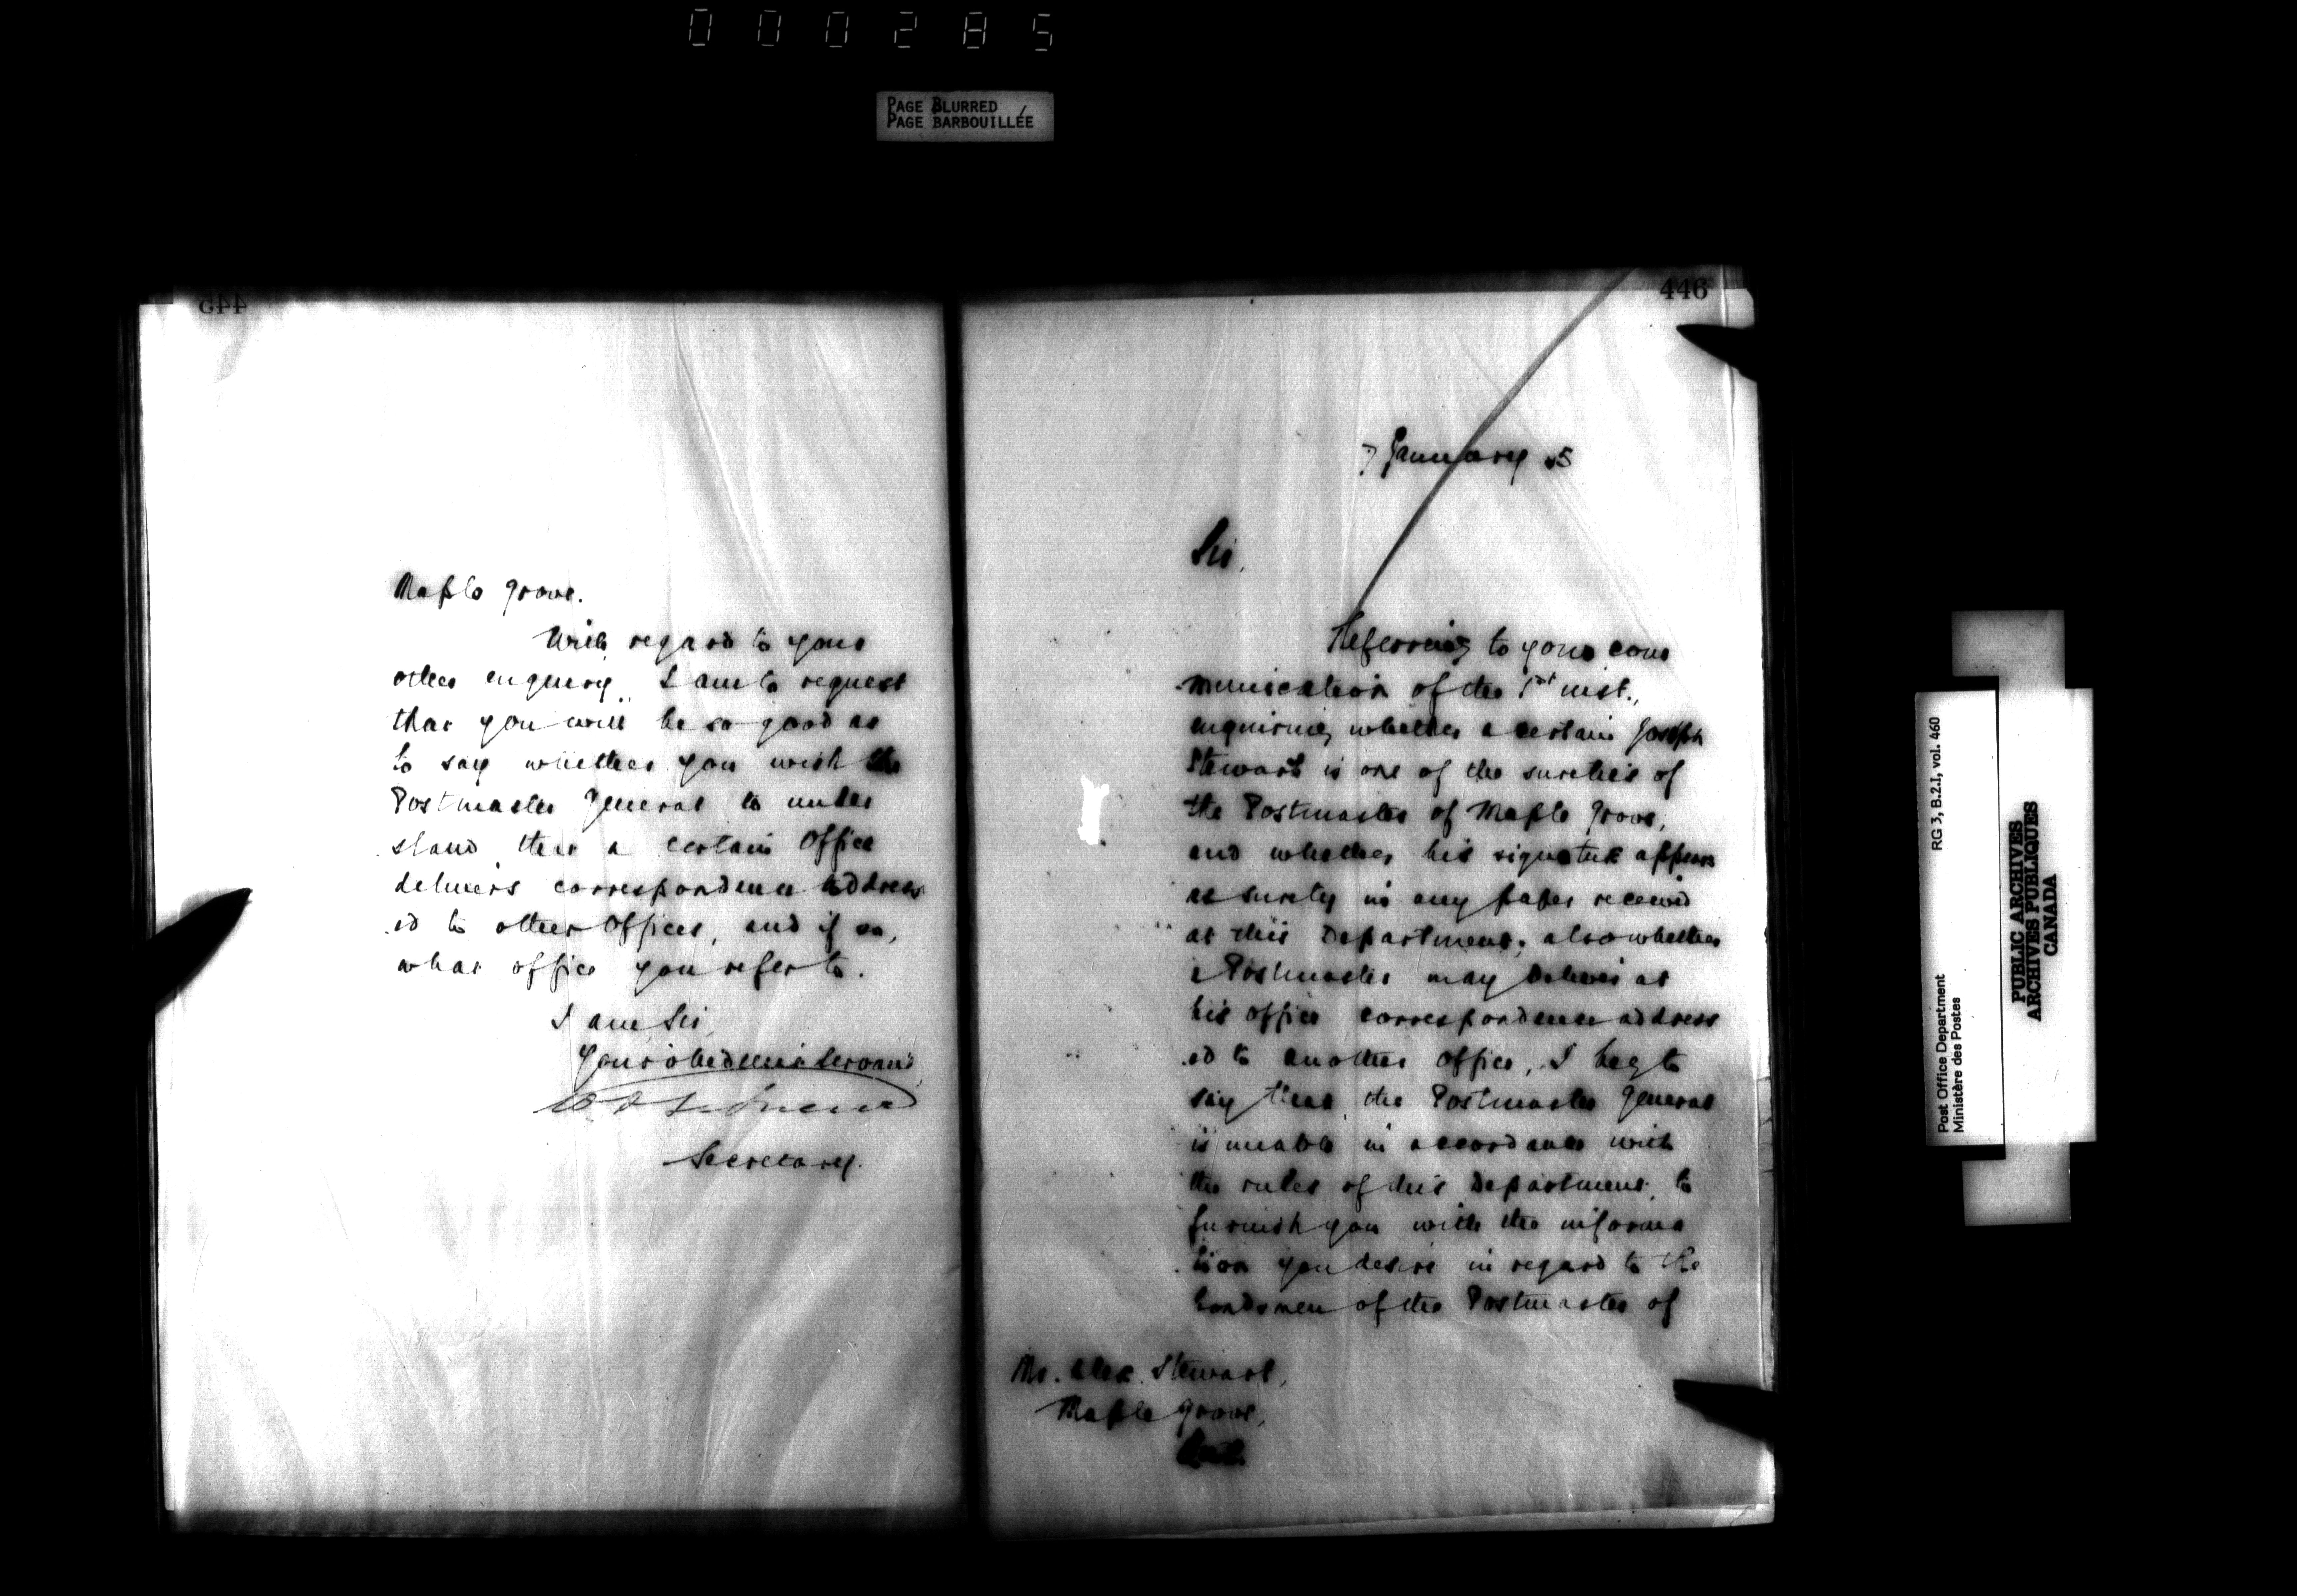 000285
PAGE BLURRED
PAGE BARBOUILLÉE
445
Maple Grove.
With regard to your
other enquiry I am to request
that you will be so good as
to say whether you wish the
Postmaster General to under
stand that a certain Office
delivers correspondence address
ed to other Offices, and if so,
what office you refer to.
I am Sir,
Your obedient Servant,
Secretary.
446
7 January 85
Sir,
Referring to your com
munication of the 1st inst.,
enquiring whether a certain Joseph
Stewart is one of the sureties of
the Postmaster of Maple Grove,
and whether his signature appears
as surety in any paper received
at this Department; also whether
a Postmaster may deliver at
his office correspondence address
ed to another Office, I beg to
say that the Postmaster General
is unable in accordance with
the rules of this Department, to
furnish you with the informa
tion you desire in regard to the
bondsmen of the Postmaster of
Mr. Alex. Stewart,
Maple Grove,
Post Office Department RG 3, B.2.I, vol. 460
Ministère des Postes
PUBLIC ARCHIVES
ARCHIVES PUBLIQUES
CANADA